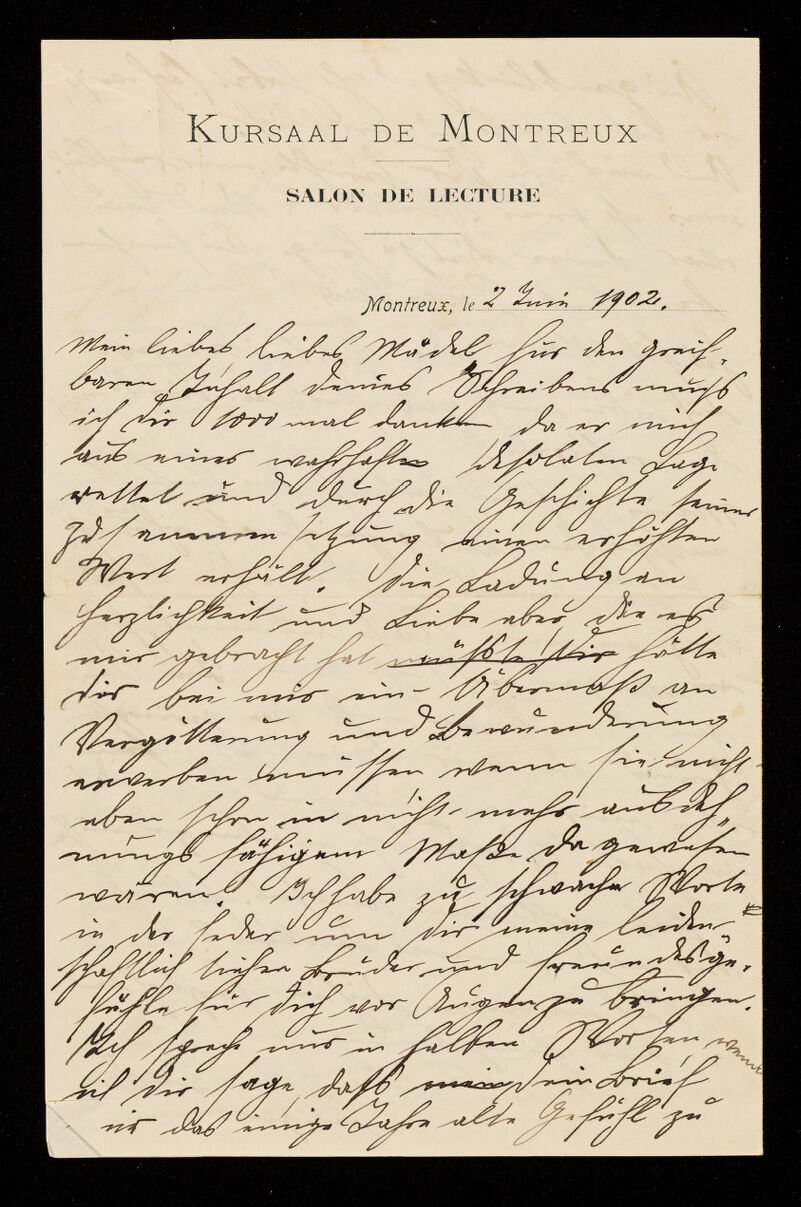 KURSAAL DE MONTREUX
SALON DE LECTURE
Montreux, le 2 Juin 1902.
Mein liebes, liebes Mädel für den greif-
baren Inhalt deines Schreibens muss
ich dir 1000 mal danken da er mich
aus einer wahrhaften desolaten Lage
rettet und durch die Geschichte seiner
Zusammensetzung einen erhöhten
Wert erhält. Die Ladung an
Herzlichkeit und Liebe aber, die er
mir gebracht hat müsste dir hätte
dir bei mir ein Übermaß an
Vergötterung und Bewunderung
erwerben müssen, wenn sie nicht
eben schon in nicht mehr ausdeh-
nungsfähigem Maße da gewesen
wären. Ich habe zu schwache Worte
in der Feder um dir meine leiden-
schaftlich Bruder und Freundesge-
fühle für dich vor Augen zu bringen.
Ich spreche nur in halben Worten, wenn
ich dir sage, dass mein dein Brief
mir das einige Jahre alte Gefühl zu